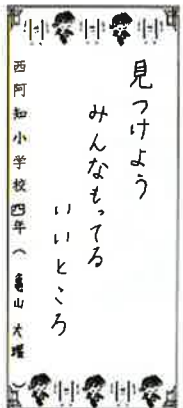 見つけよう
みんなもってる
いいところ
西阿知小学校四年（亀山 大曜）